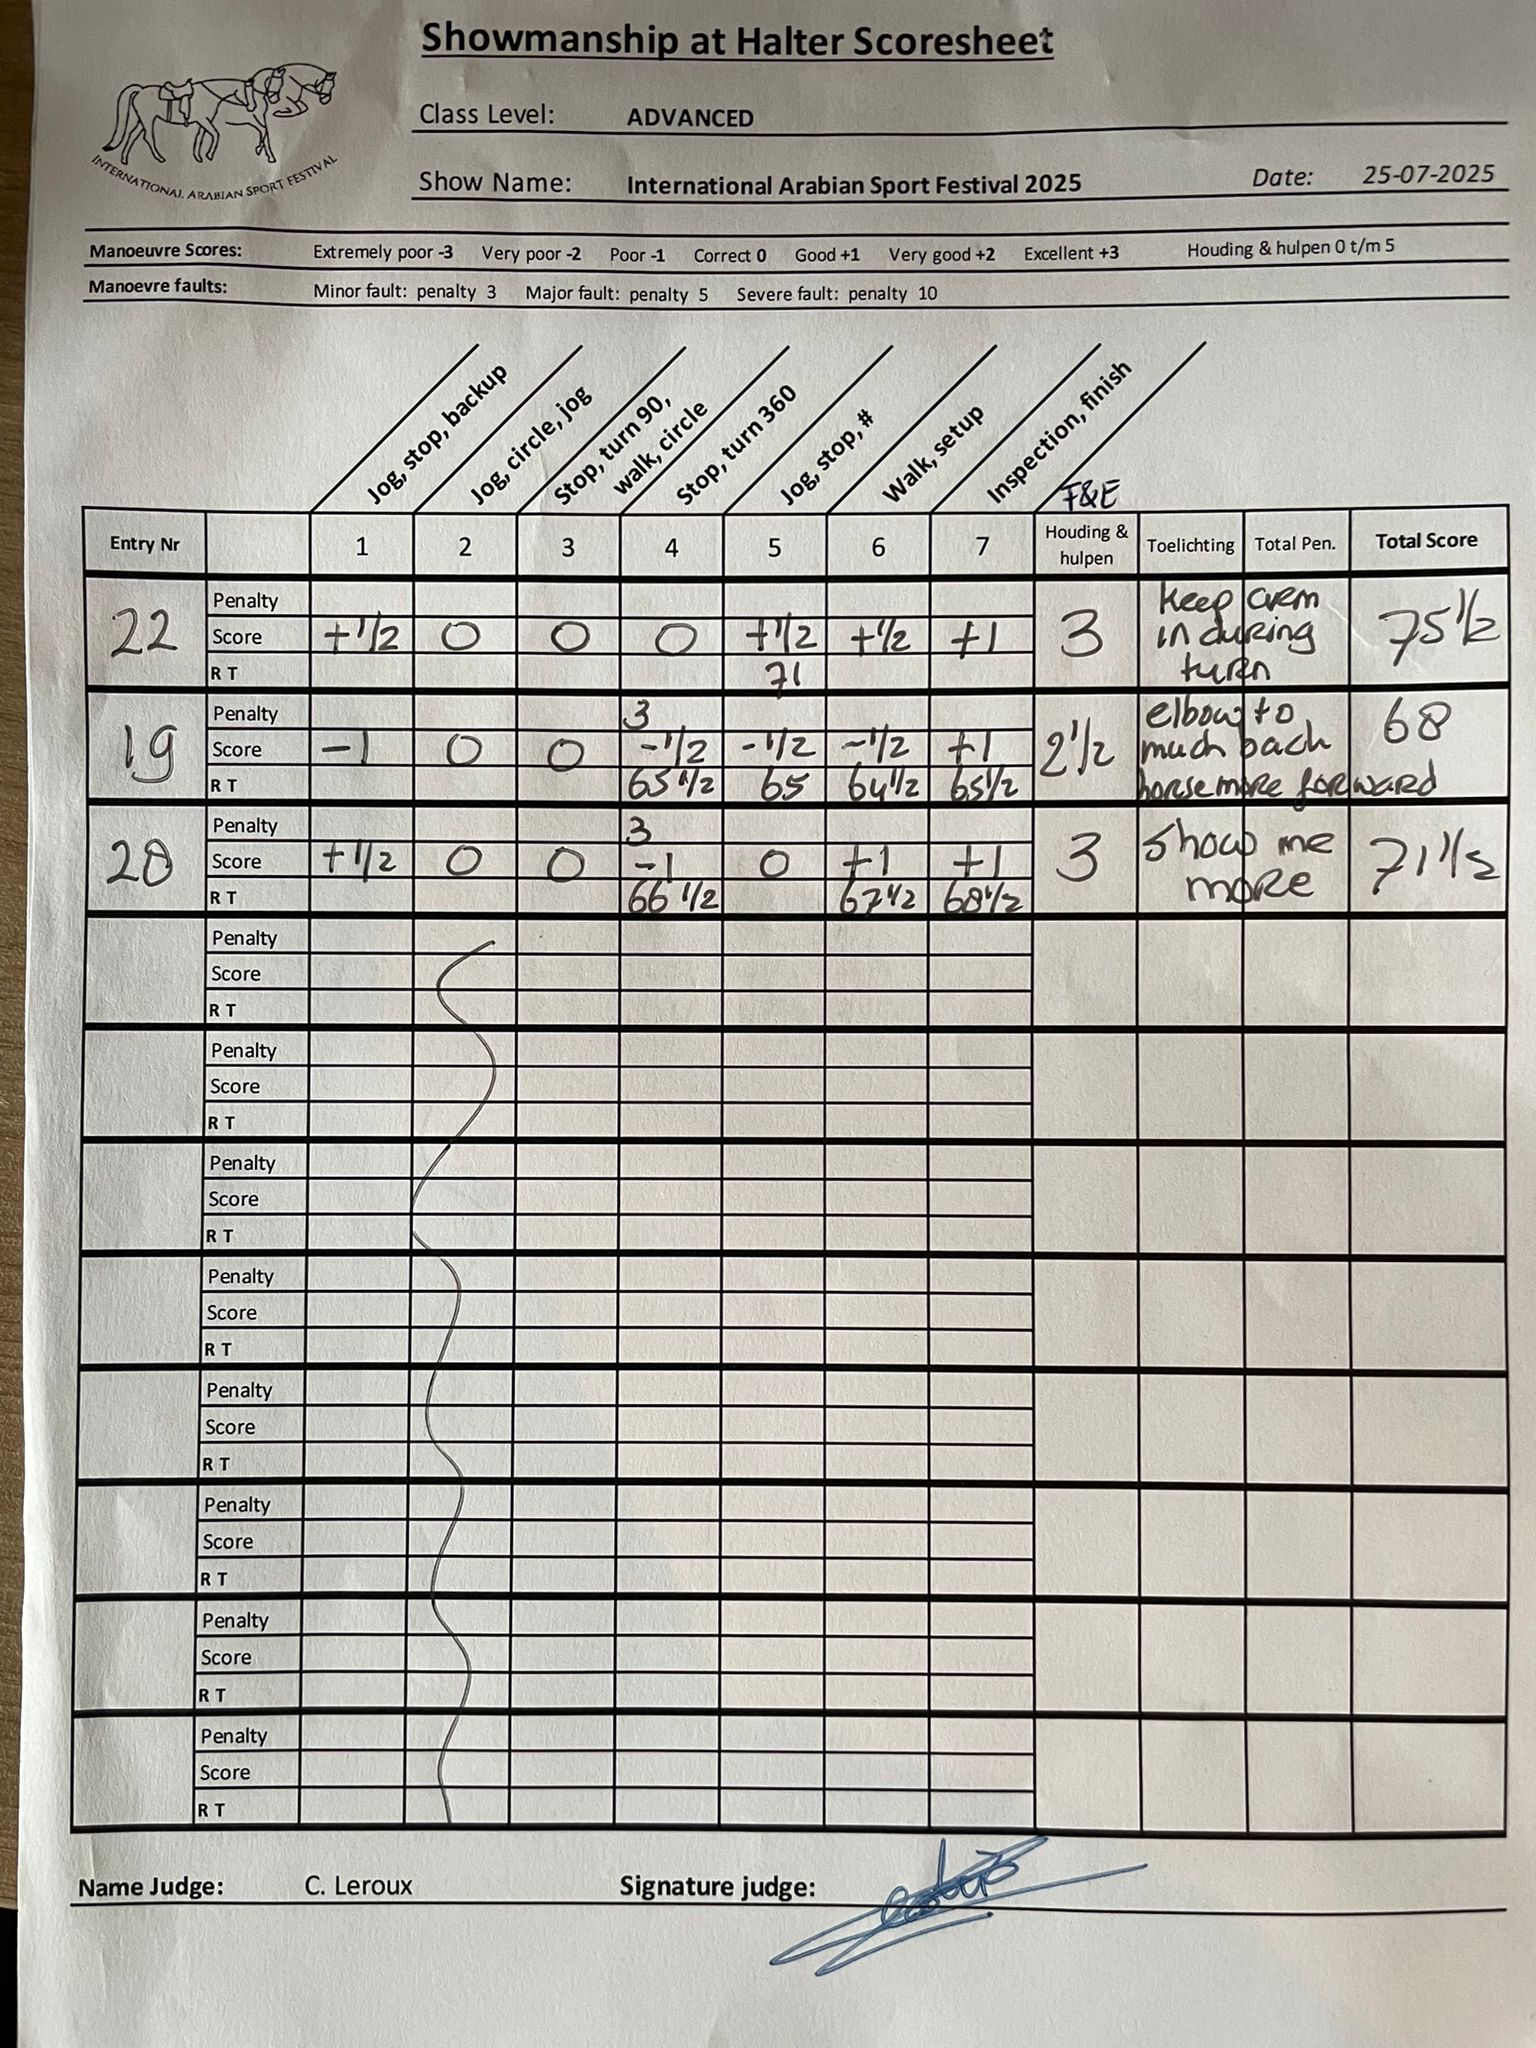 Showmanship at Halter Scoresheet
INTERNATIONAL ARABIAN SPORT FESTIVAL
Class Level: ADVANCED
Show Name: International Arabian Sport Festival 2025 Date: 25-07-2025
Manoeuvre Scores: Extremely poor -3 Very poor -2 Poor -1 Correct 0 Good +1 Very good +2 Excellent +3 Houding & hulpen 0 t/m 5
Manoevre faults: Minor fault: penalty 3 Major fault: penalty 5 Severe fault: penalty 10
Jog, stop, backup
Jog, circle, jog
Stop, turn 90,
walk, circle
Stop, turn 360
Jog, stop, #
Walk, setup
Inspection, finish
F&E
Entry Nr 1 2 3 4 5 6 7 Houding & hulpen Toelichting Total Pen. Total Score
22
Penalty
Score +1/2 0 0 0 +1/2 +1/2 +1
R T 71
3
keep arm
in during
turn
75 1/2
19
Penalty 3
Score -1 0 0 -1/2 -1/2 -1/2 +1
R T 65 1/2 65 64 1/2 65 1/2
2 1/2
elbow to
much back
horse more forward
68
20
Penalty 3
Score +1/2 0 0 -1 0 +1 +1
R T 66 1/2 67 1/2 68 1/2
3
Show me
more
71 1/2
Penalty
Score
R T
Penalty
Score
R T
Penalty
Score
R T
Penalty
Score
R T
Penalty
Score
R T
Penalty
Score
R T
Penalty
Score
R T
Penalty
Score
R T
Name Judge: C. Leroux Signature judge: